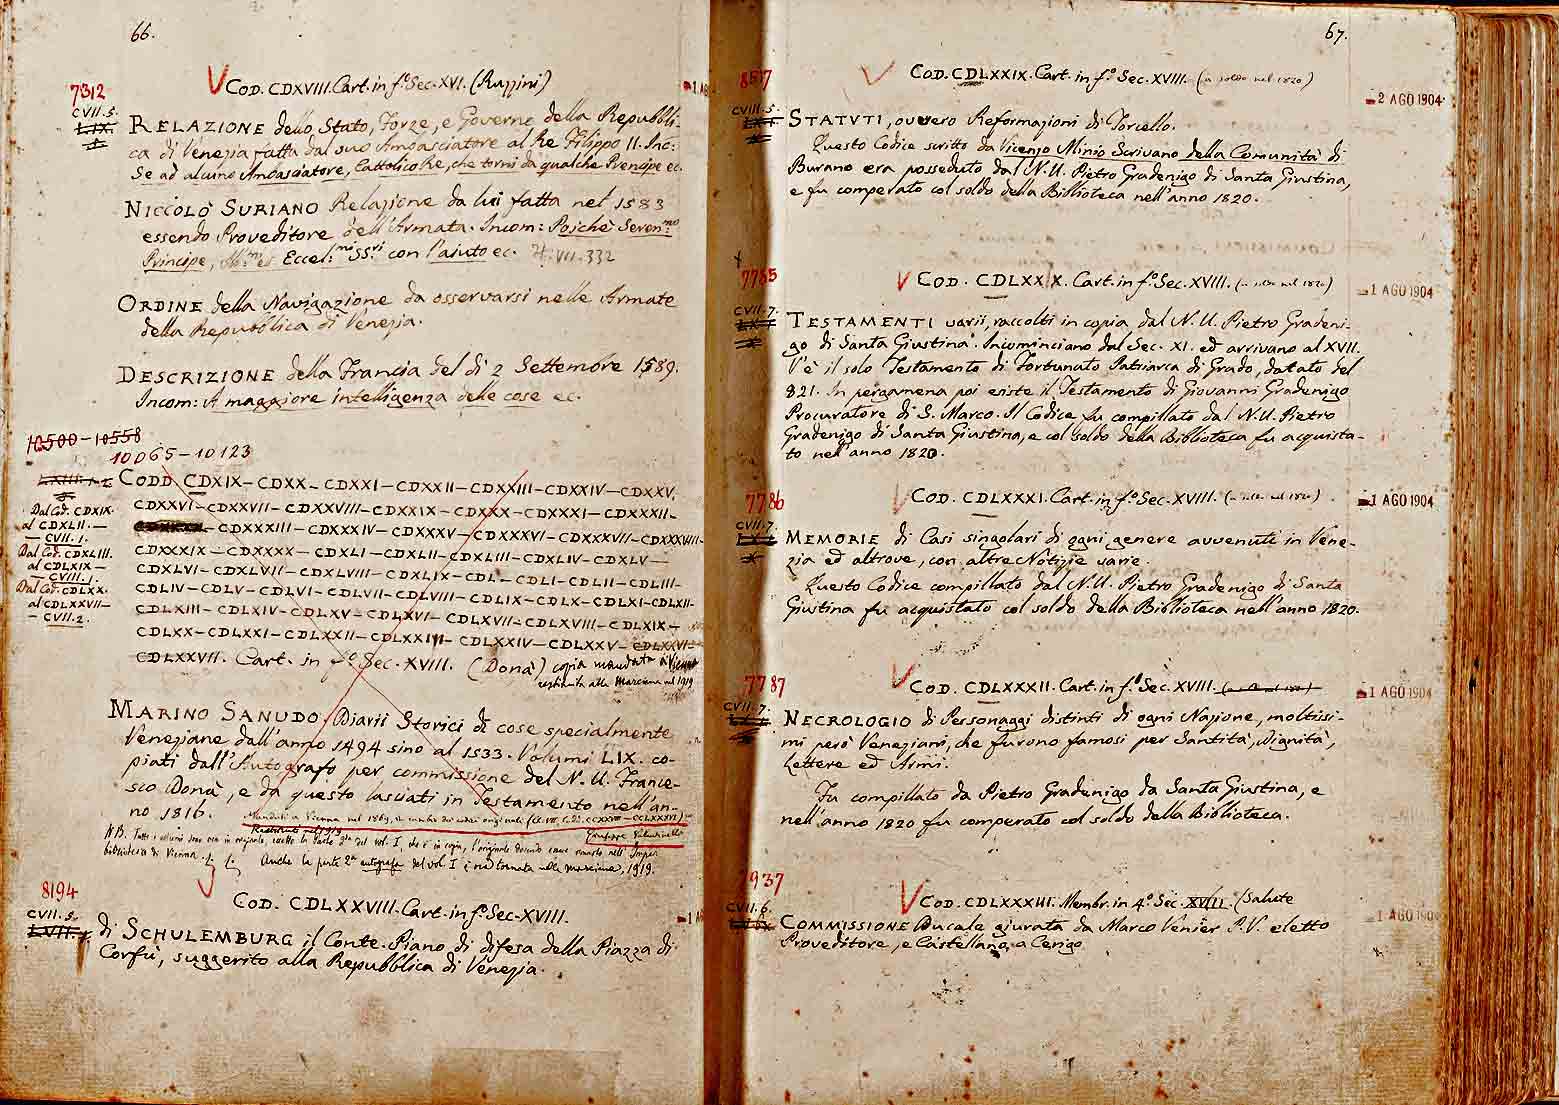 66.
7312
CVII.5.
COD. CDXVIII. Cart. in fº. Sec. XVI. (Ruzzini)
RELAZIONE dello Stato, Forze, e Governo della Repubbli-
ca di Venezia fatta dal suo Ambasciatore al Re Filippo II. Inc:
Se ad alcuno Ambasciatore, Cattolico Re, che torni da qualche Prencipe ec.
NICCOLÒ SURIANO Relazione da lui fatta nel 1583
essendo Proveditore dell'Armata. Incom: Poichè Seren.mo
Principe, Eccel.mi SS.ri con l'aiuto ec. It. VII. 332
ORDINE della Navigazione da osservarsi nelle Armate
della Repubblica di Venezia.
DESCRIZIONE della Francia del dì 2 Settembre 1589.
Incom: A maggiore intelligenza delle cose ec.
10500-10558
10065-10123
CODD. CDXIX-CDXX-CDXXI-CDXXII-CDXXIII-CDXXIV-CDXXV,
CDXXVI-CDXXVII-CDXXVIII-CDXXIX-CDXXX-CDXXXI-CDXXXII-
-CDXXXIII-CDXXXIV-CDXXXV-CDXXXVI-CDXXXVII-CDXXXVIII-
CDXXXIX-CDXXXX-CDXLI-CDXLII-CDXLIII-CDXLIV-CDXLV-
CDXLVI-CDXLVII-CDXLVIII-CDXLIX-CDL-CDLI-CDLII-CDLIII-
CDLIV-CDLV-CDLVI-CDLVII-CDLVIII-CDLIX-CDLX-CDLXI-CDLXII-
CDLXIII-CDLXIV-CDLXV-CDLXVI-CDLXVII-CDLXVIII-CDLXIX-
CDLXX-CDLXXI-CDLXXII-CDLXXIII-CDLXXIV-CDLXXV-CDLXXVI-
CDLXXVII. Cart. in fº. Sec. XVIII. (Donà) copia mandata a Vienna
restituita alla Marciana nel 1919
Dal Cod. CDXIX.
al CDXLII.—
— CVII.1.
Dal Cod. CDXLIII.
al CDLXIX—
— CVIII.1.
Dal Cod. CDLXX.
al CDLXXVII—
— CVII.2.
MARINO SANUDO. Diarii Storici di cose specialmente
Veneziane dall'anno 1494 sino al 1533. Volumi LIX. co-
piati dall'Autografo per commissione del N. U. France-
sco Donà, e da questo lasciati in Testamento nell'an-
no 1816. Mandati a Vienna nel 1869, in cambio dei codici originali (Cl. VII. Cod. CCXXVIII-CCLXXXVI)
Restituiti nel 1919 Giuseppe Valentinelli
NB. Tutti i volumi sono ora in originale, eccetto la Parte 2da del vol. I, che è in copia, l'originale essendo rimasto nell'Imper.
biblioteca di Vienna. Anche la parte 2ª autografa del vol. I è ritornata alla Marciana, 1919.
8194
CVII.5.
COD. CDLXXVIII. Cart. in fº. Sec. XVIII.
di SCHULEMBURG il Conte. Piano di difesa della Piazza di
Corfù, suggerito alla Repubblica di Venezia.
67.
8517
CVIII.5.
COD. CDLXXIX. Cart. in fº. Sec. XVIII. (a soldo nel 1820)
2 AGO 1904
STATVTI, ovvero Reformazioni di Torcello.
Questo Codice scritto da Vicenzo Minio Scrivano della Comunità di
Burano era posseduto dal N. U. Pietro Gradenigo di Santa Giustina,
e fu comperato col soldo della Biblioteca nell'anno 1820.
7785
CVII.7.
COD. CDLXXX. Cart. in fº. Sec. XVIII. (a soldo nel 1820)
1 AGO 1904
TESTAMENTI varii, raccolti in copia dal N. U. Pietro Gradeni-
go di Santa Giustina. Incominciano dal Sec. XI. ed arrivano al XVII.
V'è il solo Testamento di Fortunato Patriarca di Grado, datato del
821. In pergamena poi esiste il Testamento di Giovanni Gradenigo
Procuratore di S. Marco. Il Codice fu compillato dal N. U. Pietro
Gradenigo di Santa Giustina, e col soldo della Biblioteca fu acquista-
to nell'anno 1820.
7786
CVII.7.
COD. CDLXXXI. Cart. in fº. Sec. XVIII. (a soldo nel 1820)
1 AGO 1904
MEMORIE di Casi singolari di ogni genere avvenuti in Vene-
zia ed altrove, con altre Notizie varie.
Questo Codice compillato dal N. U. Pietro Gradenigo di Santa
Giustina fu acquistato col soldo della Biblioteca nell'anno 1820.
7787
CVII.7.
COD. CDLXXXII. Cart. in fº. Sec. XVIII. (a soldo nel 1820)
1 AGO 1904
NECROLOGIO di Personaggi distinti di ogni Nazione, moltissi-
mi però Veneziani, che furono famosi per Santità, Dignità,
Lettere ed Armi.
Fu compillato da Pietro Gradenigo da Santa Giustina, e
nell'anno 1820 fu comperato col soldo della Biblioteca.
7937
CVII.6.
COD. CDLXXXIII. Membr. in 4º. Sec. XVIII. (Salute
1 AGO 1904
COMMISSIONE Ducale giurata da Marco Venier P.V. eletto
Proveditore, e Castellano a Cerigo